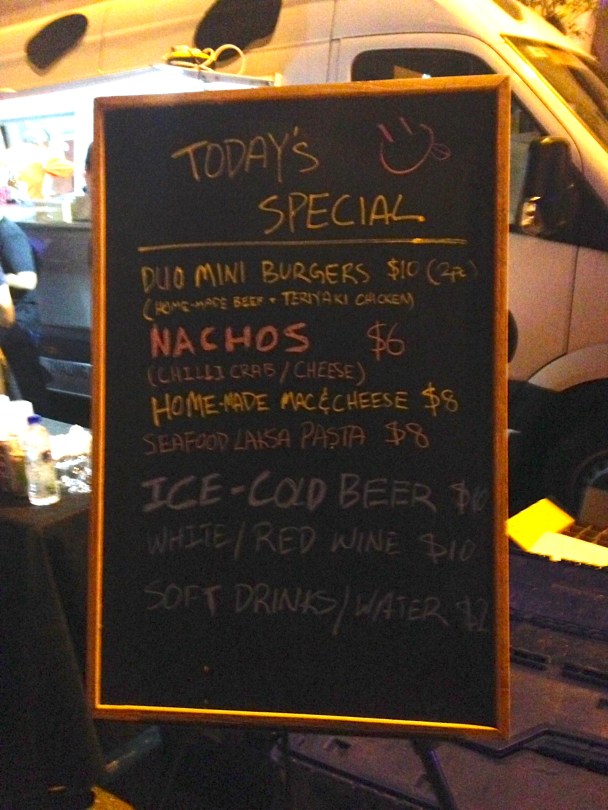 TODAY'S
SPECIAL
DUO MINI BURGERS $10 (2pc)
(HOME-MADE BEEF + TERIYAKI CHICKEN)
NACHOS $6
(CHILLI CRAB / CHEESE)
HOME-MADE MAC & CHEESE $8
SEAFOOD LAKSA PASTA $8
ICE-COLD BEER $10
WHITE/RED WINE $10
SOFT DRINKS/WATER $2